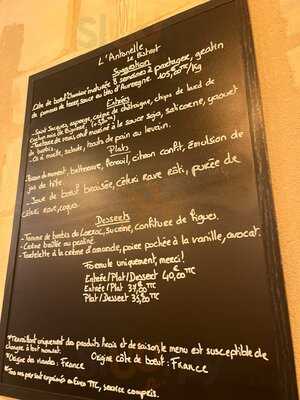 L'Antonelle
Le Bistrot
Suggestion
Côte de boeuf maturée 8 semaines à partager, gratin
de pommes de terre, sauce au bleu d'Auvergne. 105,00TTC/KG
Entrées
- Saint Jacques, asperge, crème de châtaigne, chips de lard de
cochon noir de Bigorre
oeuf mariné à la sauce soja, satconne, yaourt
de brebis.
- salade, toasts de pain au levain.
Plats
- Poisson du moment, betterave, fenouil, citron confit, émulsion de
jus de tête.
- Joue de boeuf braisée, céleri rave rôti, purée de
céleri rave, coco.
Desserts
- Tomme de brebis du Larzac, sucrine, confiture de figues.
- Crème brûlée au praliné.
- Tartelette à la crème d'amande, poire pochée à la vanille, avocat.
Formule uniquement, merci!
Entrée/Plat/Dessert 40,00€TTC
Entrée/Plat 37,00€TTC
Plat/Dessert 35,20TTC
*Travaillant uniquement des produits frais et de saison, le menu est susceptible de
changer à tout moment.
*Origine des viandes: France Origine côte de boeuf: France
exprimés en Euros TTC, service compris.